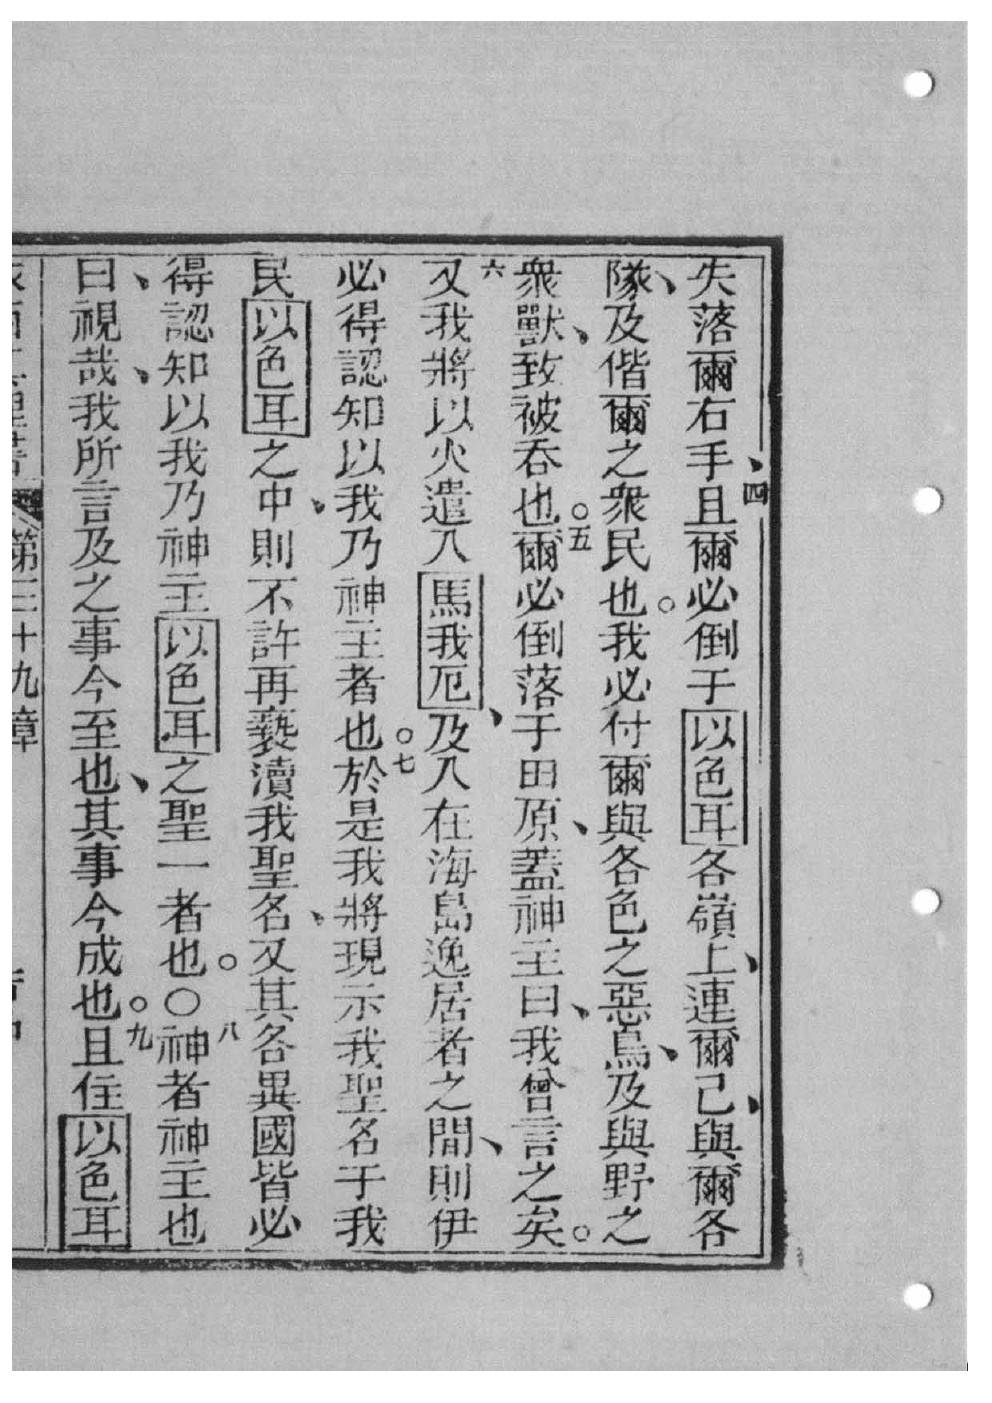 失落爾右手四且爾必倒于以色耳各嶺上連爾己與爾各
隊及偕爾之衆民也我必付爾與各色之惡鳥及與野之
衆獸致被吞也五爾必倒落于田原蓋神主曰我曾言之矣
六又我將以火遣入馬我厄及入在海島逸居者之間則伊
必得認知以我乃神主者也七於是我將現示我聖名于我
民以色耳之中則不許再褻瀆我聖名又其各異國皆必
得認知以我乃神主以色耳之聖一者也○八神者神主也
曰視哉我所言及之事今至也其事今成也九且住以色耳
第三十九章